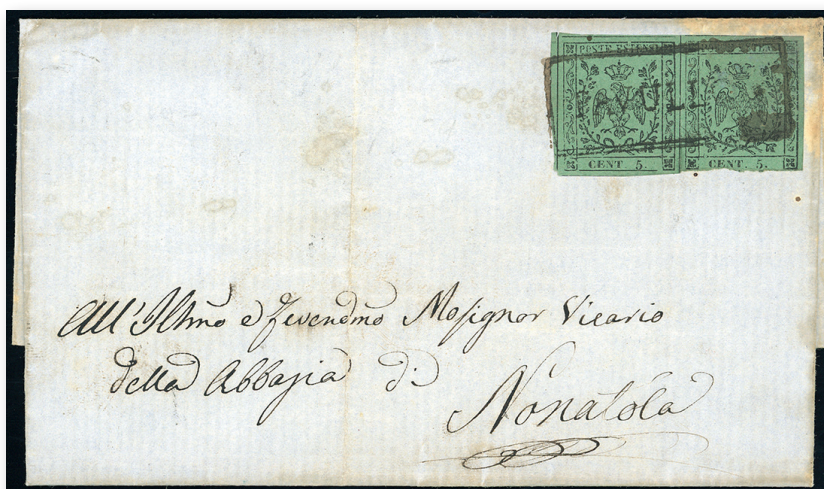 POSTE ESTENSI
CENT 5. CENT 5.
All' Illmo e Revendmo Monsignor Vicario
della Abbazia di
Nonatola